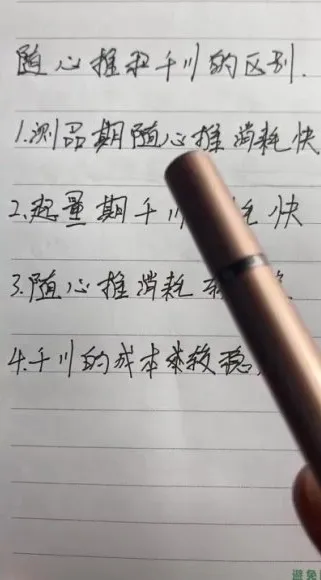 随心推和千川的区别.
1.测品期随心推消耗快
2.起量期千川 耗快
3.随心推消耗
4.千川的成本来较稳
避免